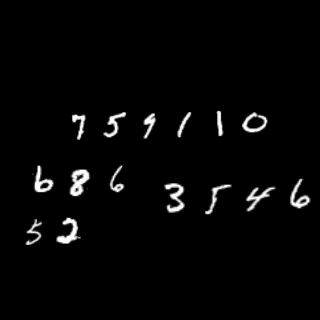 759110
686
3546
52